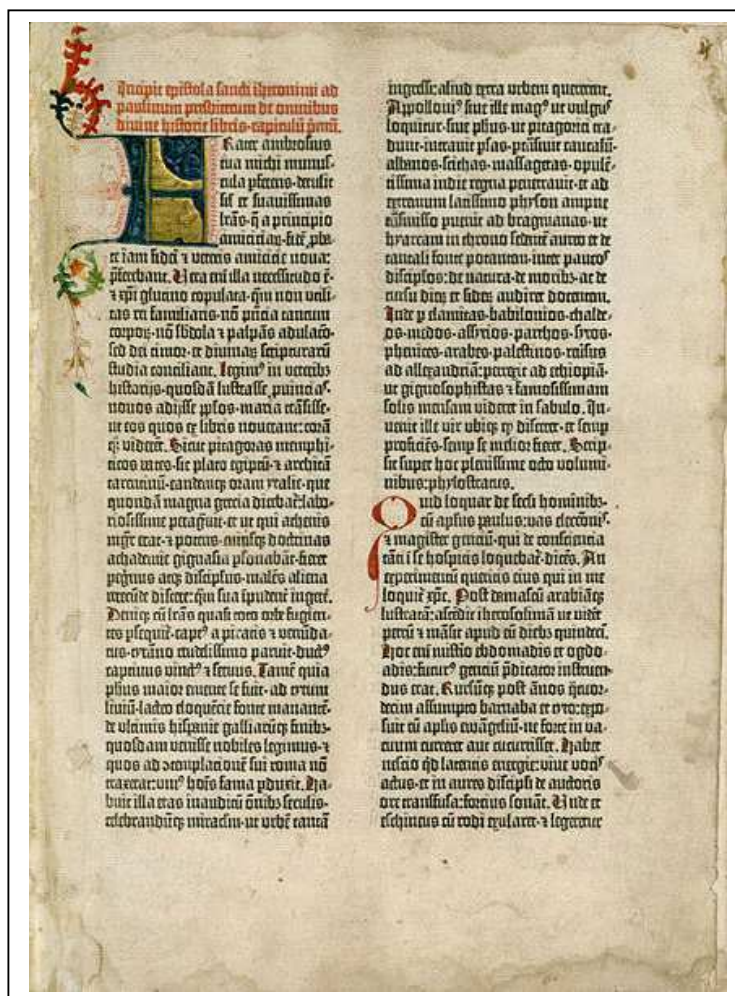 Incipit epistola sancti iheronimi ad
paulinum presbiterum de omnibus
divine historie libris·capitulũ primũ.
Frater ambrosius
tua michi munus-
cula pferens·detulit
sil̃ et suavissimas
lrãs·q̃ a principio
amiciciaꝝ·fidẽ ꝓba-
te iam fidei ⁊ veteris amicicie nova:
p̃ferebant. Vera em̃ illa necessitudo ẽ·
⁊ xp̃i glutino copulata·qm̃ non utili-
tas rei familiaris·nõ p̃ncia tantum
corpoꝝ·nõ sb̃dola ⁊ palpãs adulacõ·
sed dei timor·et divinaꝝ scripturarũ
studia conciliant. Legimꝰ in veteribꝫ
historijs·quosdã lustrasse ꝓuinciaˢ·
novos adijsse pp̃los·maria trãsisse·
ut eos quos ex libris noverant:corã
qꝫ viderẽt. Sicut pitagoras memphi-
ticos vates·sic plato egiptũ·⁊ architã
tarentinũ·eandemqꝫ oram ytalie·que
quondã magna grecia dicebat̃:labo-
riosissime peragͥvit·et ut qui athenis
mgr̃ erat·⁊ potens·cuiusqꝫ doctrinas
achademie gignasia ꝑsonabãt·fieret
peg̃nus atqꝫ discipl̃us·malẽs aliena
verecũde discere:qm̃ sua ĩpudent̃ ingerẽ.
Deniqꝫ cũ lrãs quasi toto orbe fugien-
tes ꝑsequit̃·captꝰ a piratis ⁊ venũda-
tus·tyrãno crudelissimo paruit·ductꝰ
captivus vinctꝰ ⁊ servus. Tamẽ quia
ph̃us maior emente se fuit·ad tytum
liviũ·lacteo eloquẽcie fonte manantẽ·
de ultimis hispanie galliarũqꝫ finibꝫ·
quosdam venisse nobiles legimus·⁊
quos ad ↄtemplacionẽ sui roma nõ
traxerat:unĩꝰ hoĩs fama ꝑduxit. Ha-
buit illa etas inauditũ õnibꝫ seculis·
celebrandũqꝫ miracl̃m·ut urbẽ tantã
ingressi:aliud extra urbem quererent.
Appolloniꝰ sive ille magꝰ ut vulgꝰ
loquitur·sive ph̃us·ut pitagorici tra-
dunt·intravit ꝑsas·ꝑtrãsivit caucasũ·
albanos·scithas·massagetas·opulẽ-
tissima indie regna penetravit·et ad
extremum latissimo physon ampne
trãsmisso pervẽit ad bragmanas·ut
hyarcam in throno sedentẽ aureo et de
tantali fonte potantem·inter paucoˢ
discipl̃os:de natura·de moribꝫ·ac de
cursu dieꝝ et sideꝝ audiret docentem.
Inde ꝑ elamitas·babilonios·chalde-
os·medos·assyrios·parthos·syros·
phenices·arabes·palestinos·reũsus
ad allexandriã:perrexit ad ethiopiã·
ut gignosophistas ⁊ famosissimam
solis mensam videret in sabulo. In-
venit ille vir ubiqꝫ qꝫ disceret·et semp
proficiẽs·semp se melior fieret. Scrip-
sit super hoc plenissime octo volumi-
nibus:phylostratus.
Quid loquar de seculi hominibꝫ·
cũ apl̃us paulus:vas electõnis·
⁊ magister genciũ·qui de conscientia
tãti ĩ se hospitis loquebat̃·dicẽs. An
experimentũ queritis eius qui in me
loquit̃ xp̃c. Post damascũ arabiãqꝫ
lustratã:ascẽdit iherosolimã ut vidẽt
petrũ ⁊ mãsit apud eũ diebꝫ quindecĩ.
Hoc em̃ misterio ebdomadis et ogdo-
adis:futurꝰ genciũ p̃dicator instruen-
dus erat. Rursũqꝫ post ãnos q̃tuor-
decim assumpto barnaba et tyto:expo-
suit cũ apl̃is ewãgeliũ·ne forte in va-
cuum curreret aut cucurrisset. Habet
nescio qd̃ latentis energie:vive vociˢ
actus·et in aures discipl̃i de auctoris
ore transfusa:forcius sonãt. Unde et
eschineus cũ rodi exularet·⁊ legeretur